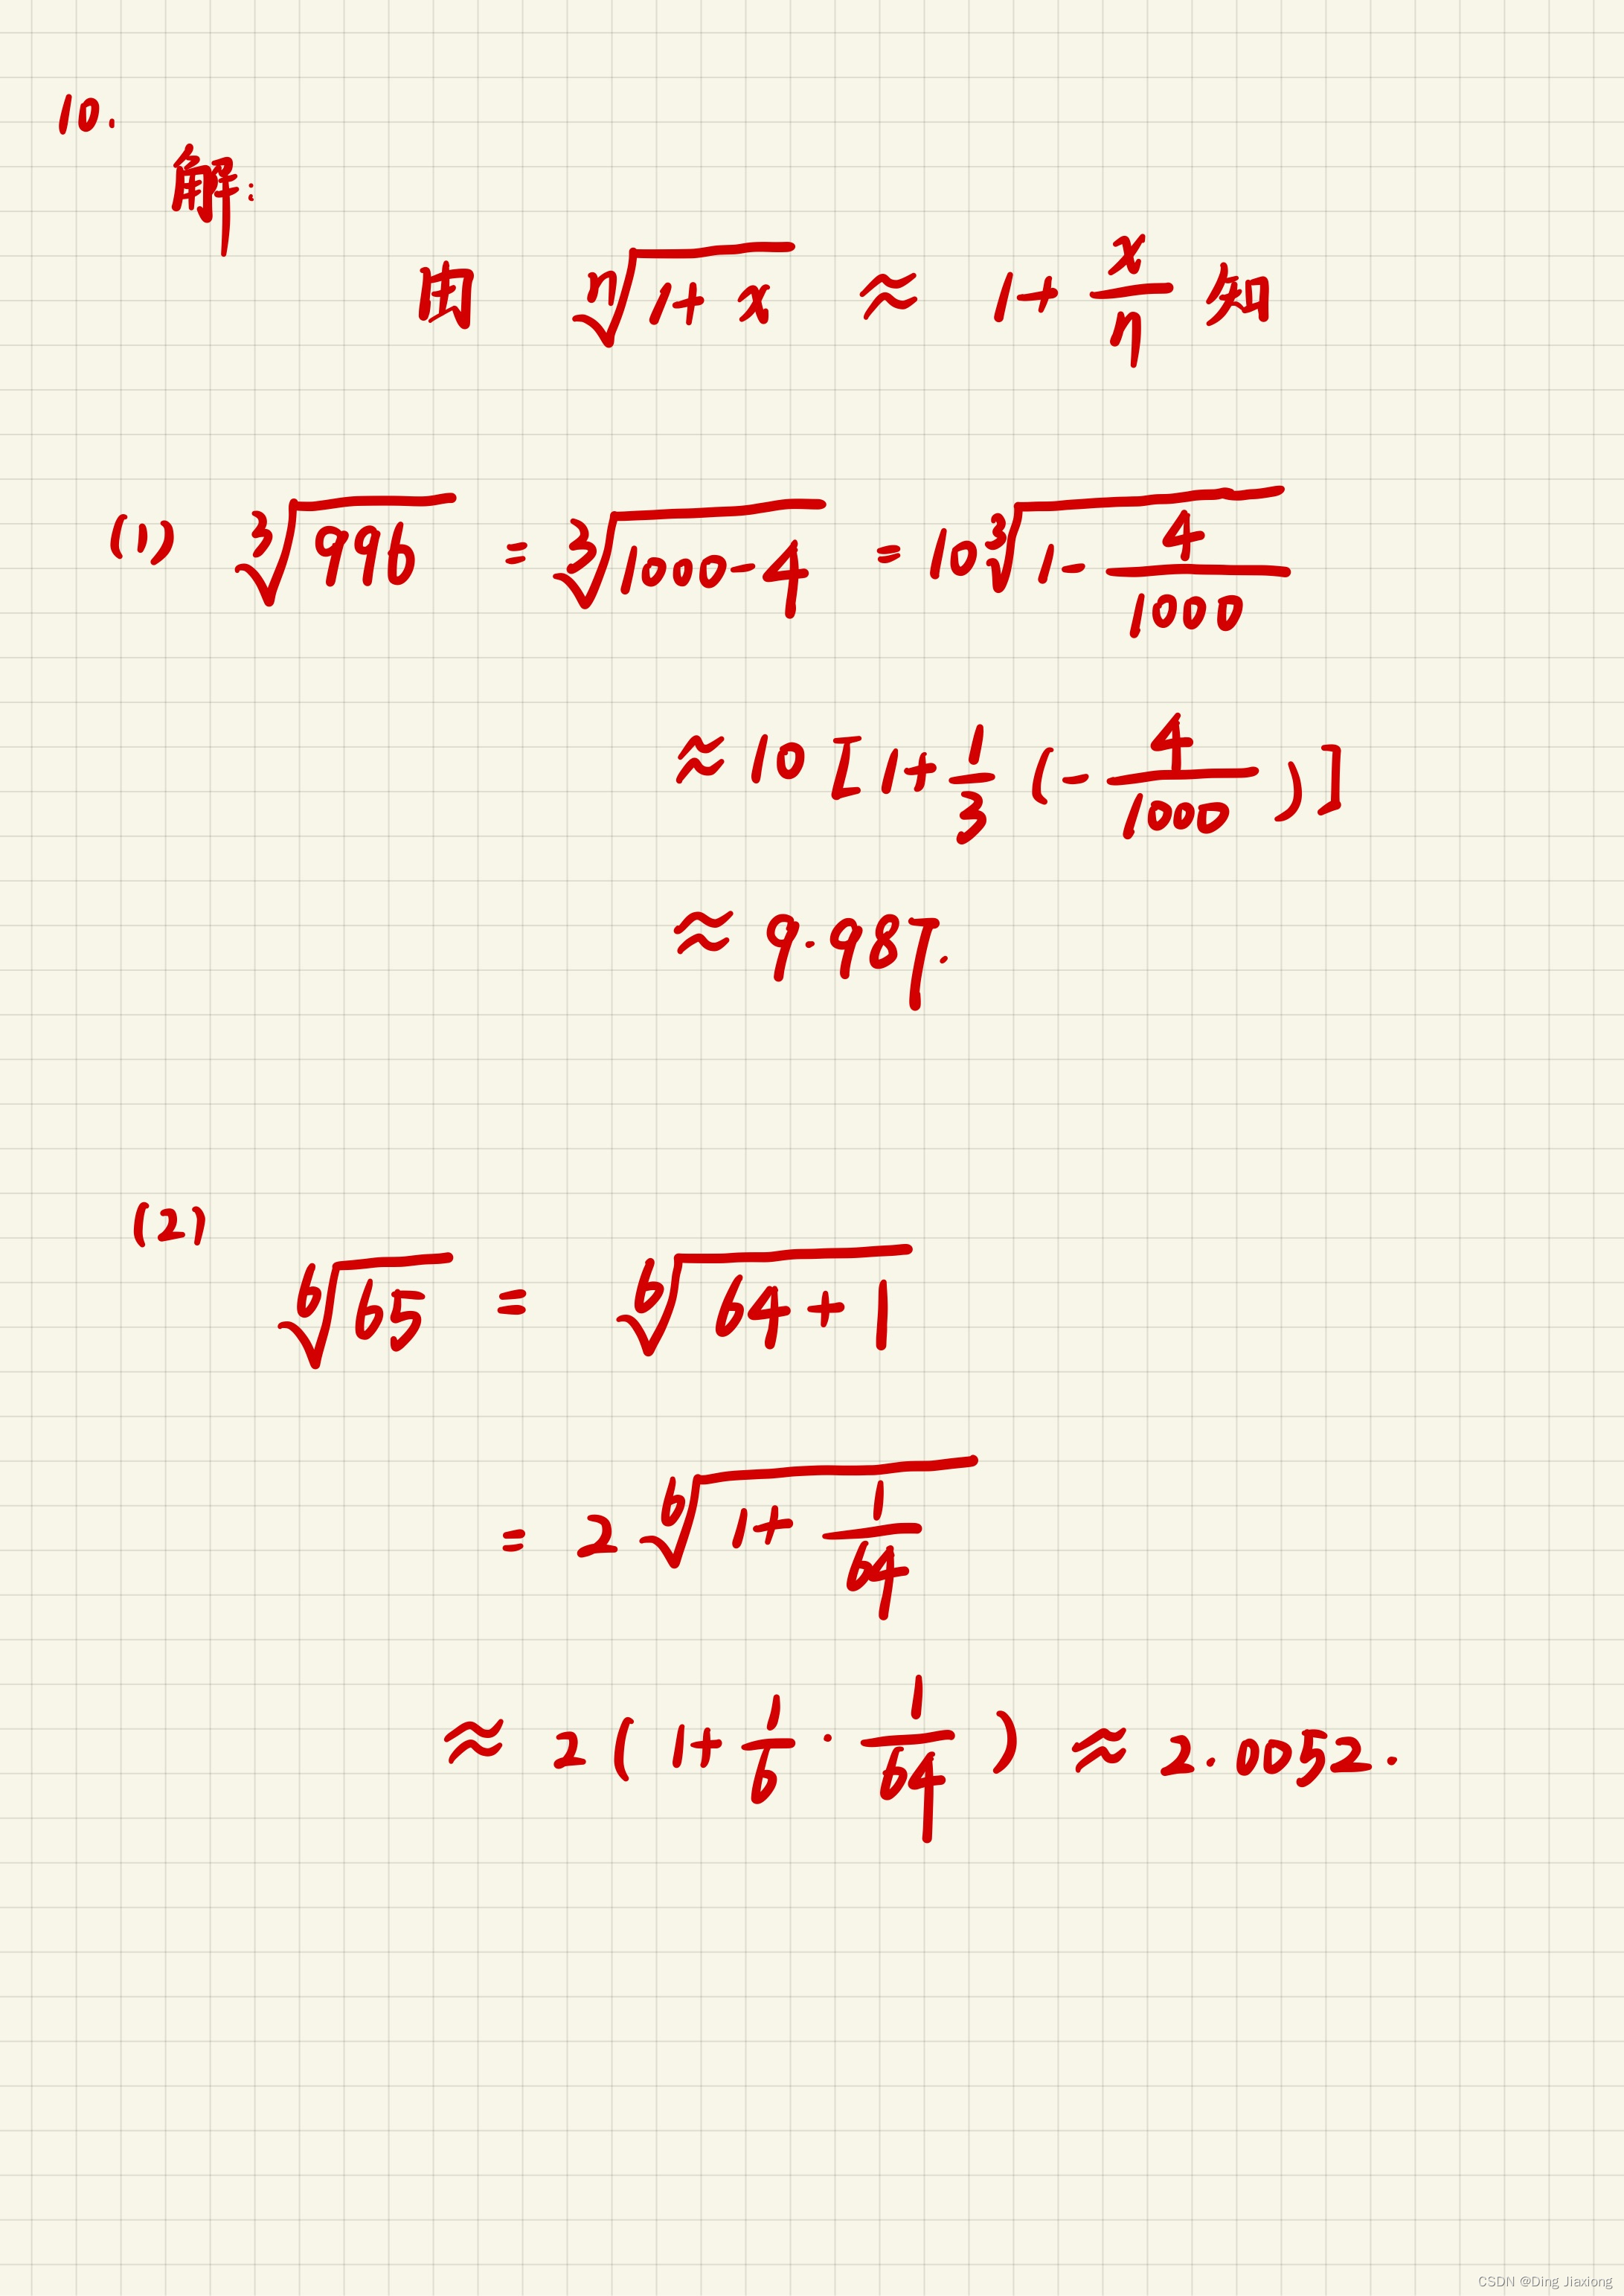 10.
解:
由 $\sqrt[n]{1+x} \approx 1+\frac{x}{n}$ 知
(1) $\sqrt[3]{996} = \sqrt[3]{1000-4} = 10\sqrt[3]{1-\frac{4}{1000}}$
$\approx 10[1+\frac{1}{3}(-\frac{4}{1000})]$
$\approx 9.987.$
(2)
$\sqrt[6]{65} = \sqrt[6]{64+1}$
$= 2\sqrt[6]{1+\frac{1}{64}}$
$\approx 2(1+\frac{1}{6}\cdot\frac{1}{64}) \approx 2.0052.$
CSDN @Ding Jiaxiong